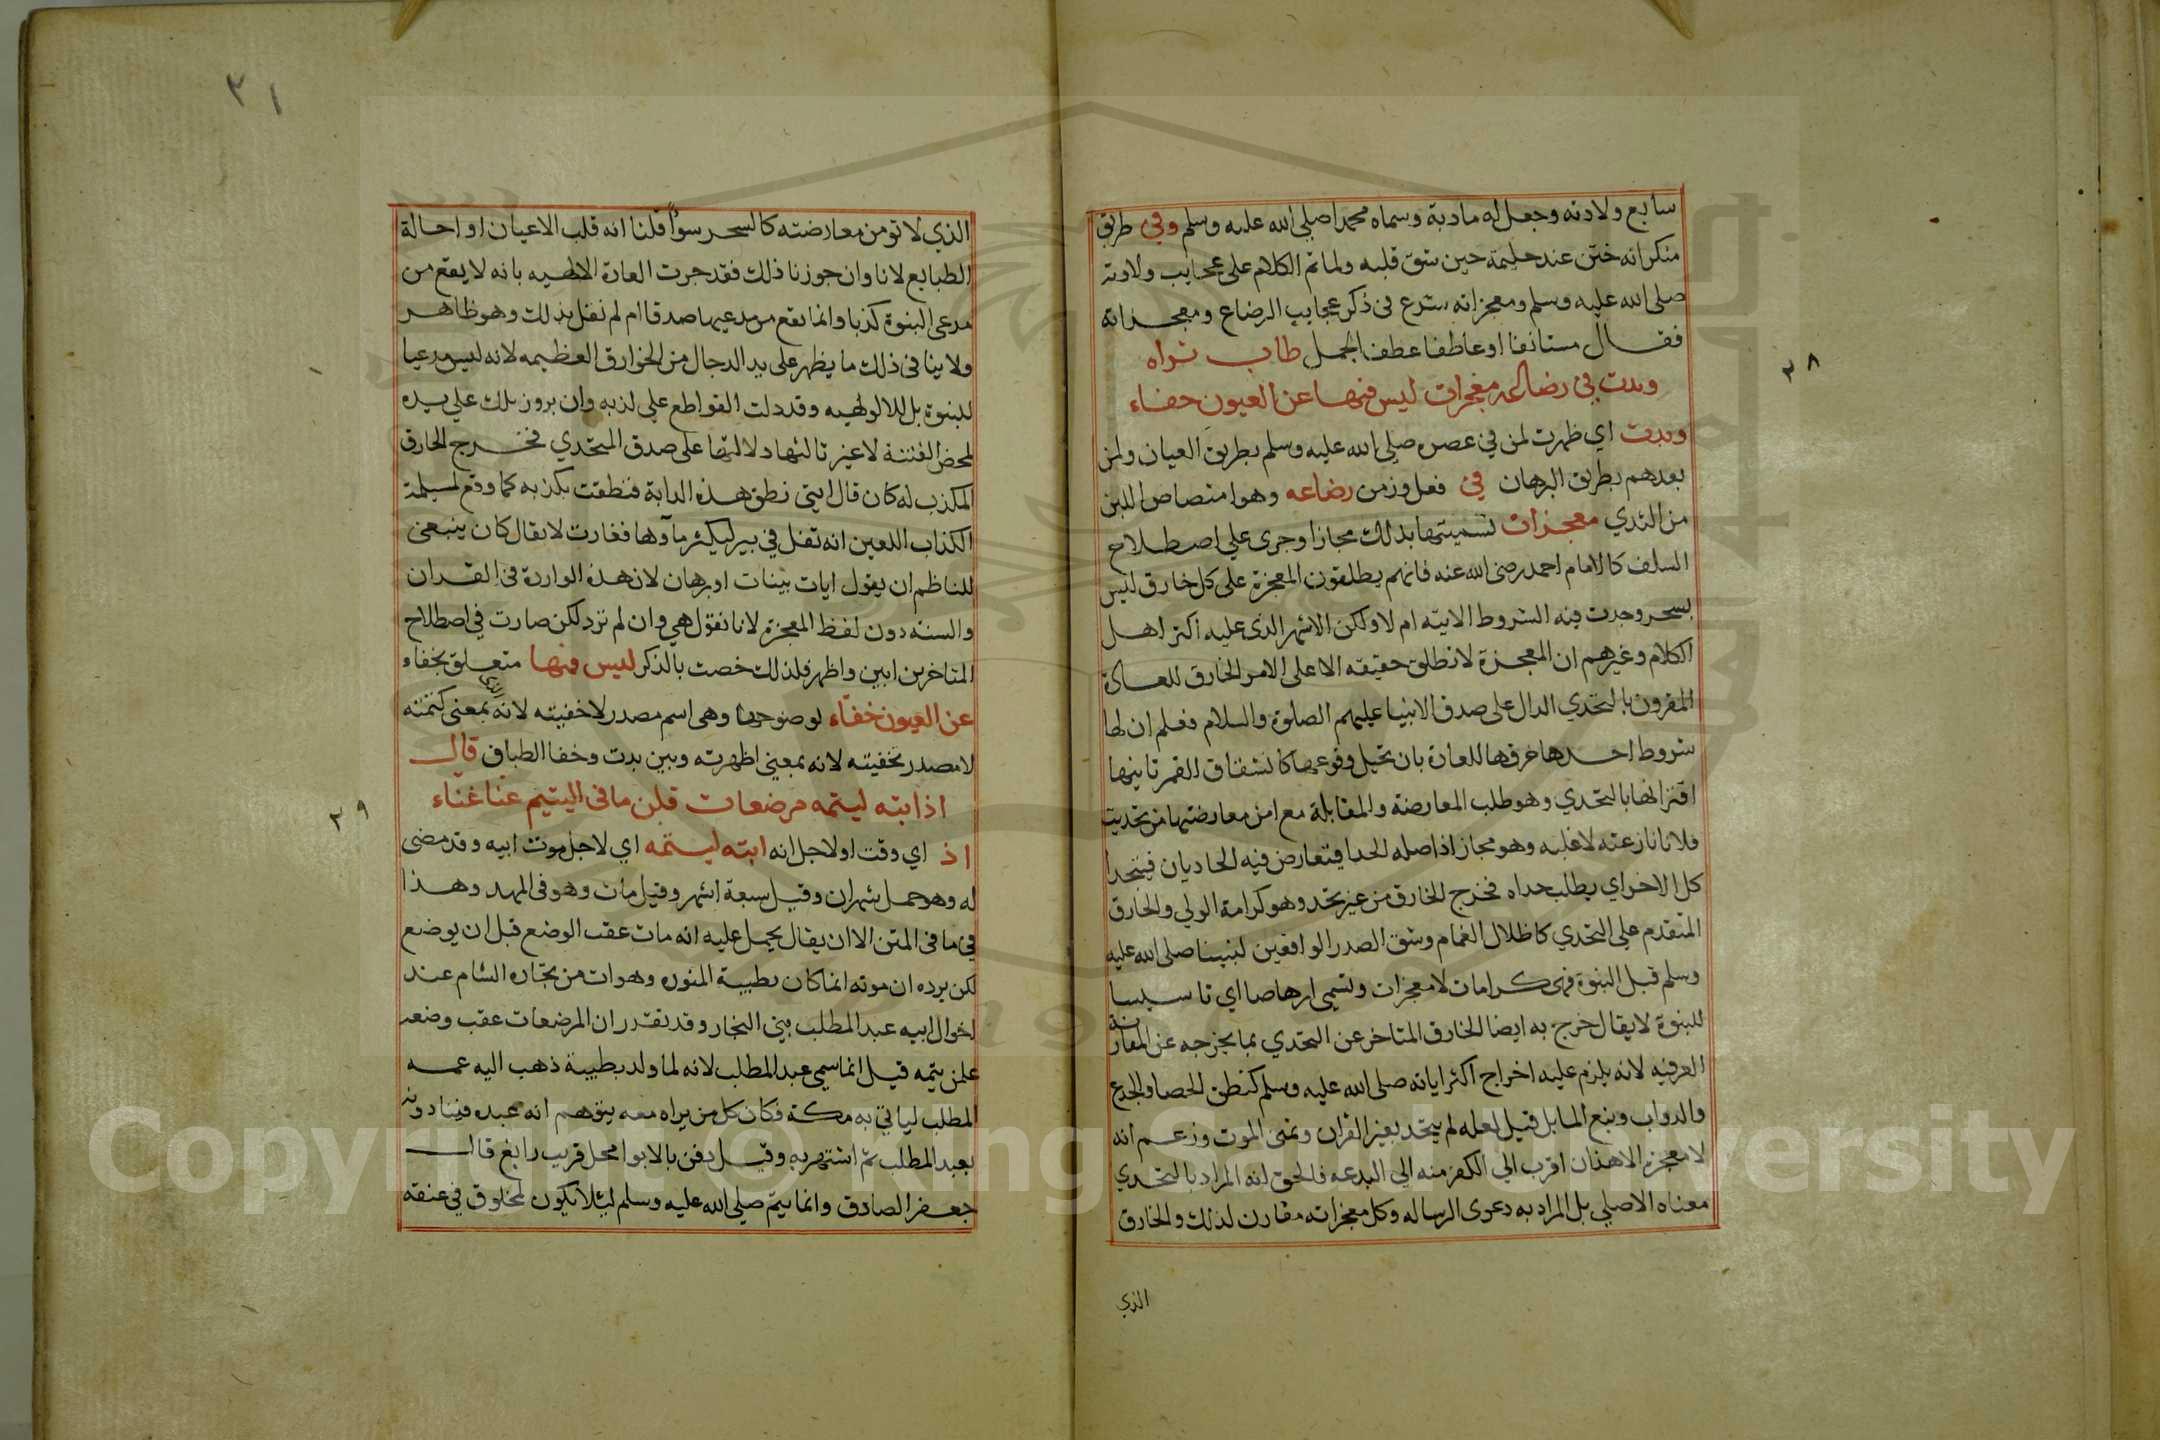 سابع ولادته وجعل له مادبة وسماه محمدا صلى الله عليه وسلم وفي طريق
منكر انه ختن عند حليمة حين شق قلبه ولما تم الكلام على عجايب ولادته
صلى الله عليه وسلم ومعجزاته شرع في ذكر عجايب الرضاع ومعجزاته
فقال مستانفا او عاطفا عطف الجمل طاب ثراه
وبدت في رضاعه معجزات ليس فيها عن العيون خفاء
وبدت اي ظهرت لمن في عصره صلى الله عليه وسلم بطريق العيان ولمن
بعدهم بطريق البرهان في فعل وزمن رضاعه وهو امتصاص اللبن
من الثدي معجزات تسميتها بذلك مجازا وجرى على اصطلاح
السلف كالامام احمد رضي الله عنه فانهم يطلقون المعجزة على كل خارق ليس
بسحر وجدت فيه الشروط الاتيه ام لا ولكن الاشهر الذي عليه اكثر اهل
الكلام وغيرهم ان المعجزة لا تطلق حقيقه الا على الامر الخارق للعادة
المقرون بالتحدي الدال على صدق الانبيا عليهم الصلوة والسلام فعلم ان لها
شروط احدها خرقها للعادة بان تحيل وقوعها كانشقاق القمر ثانيها
اقترانها بالتحدي وهو طلب المعارضة والمقابلة مع امن معارضتها من تحديت
فلانا نازعته لاغلبه وهو مجاز اذ اصله الحدا فيتعارض فيه الحاديان فيتحدا
كل الاخر اي يطلب حداه فخرج الخارق من غير تحد وهو كرامة الولي والخارق
المتقدم على التحدي كاظلال الغمام وشق الصدر الواقعين لنبينا صلى الله عليه
وسلم قبل النبوة فهي كرامات لا معجزات وتسمى ارهاصا اي تاسيسا
للنبوة لا يقال خرج به ايضا الخارق المتاخر عن التحدي بما يخرجه عن المقارنة
العرفيه لانه يلزم عليه اخراج اكثر اياته صلى الله عليه وسلم كنطق الحصا والجذع
والدواب ونبع الما بل قيل لعله لم يتحد بغير القران وتمنى الموت وزعم انه
لا معجزة الا هذان اقرب الى الكفر منه الى البدعه فالحق انه المراد بالتحدي
معناه الاصلي بل المراد به دعوى الرساله وكل معجزاته مقارن لذلك والخارق
الذي
٣٨
٣١
الذي لا تومن معارضته كالسحر سوا قلنا انه قلب الاعيان او احالة
الطبايع لانا وان جوزنا ذلك فقد جرت العادة الالهيه بانه لا يقع من
مدعي النبوة كذبا وانما يقع من مدعيها صدقا ام لم نقل بذلك وهو ظاهر
ولا ينافي ذلك ما يظهر على يد الدجال من الخوارق العظيمه لانه ليس مدعيا
للنبوة بل للالوهيه وقد دلت القواطع على كذبه وان بروز تلك على يده
لمحض الفتنة لا غير ثالثها دلالتها على صدق المتحدي فخرج الخارق
المكذب له كان قال ايتي نطق هذه الدابة فنطقت بكذبه كما وقع لمسيلمة
الكذاب اللعين انه تفل في بير ليكثر مآوها فغارت لا يقال كان ينبغي
للناظم ان يقول ايات بينات او برهان لان هذه الواردة في القران
والسنه دون لفظ المعجزة لانا نقول هي وان لم ترد لكن صارت في اصطلاح
المتاخرين ابين واظهر فلذلك خصت بالذكر ليس فيها متعلق بخفاء
عن العيون خفاء لوضوحها وهي اسم مصدر لاخفيته لانه بمعنى كتمته
لا مصدر خفيته لانه بمعنى اظهرته وبين بدت وخفا الطباق قال
اذ ابته ليتمه مرضعات قلن ما في اليتيم عنا غناء
اذ اي وقت او لاجل انه ابته ليتمه اي لاجل موت ابيه وقد مضى
له وهو حمل شهران وقيل سبعة اشهر وقيل مات وهو في المهد وهذا
في ما في المتن الا ان يقال يحمل عليه انه مات عقب الوضع قبل ان يوضع
لكن يرده ان موته انما كان بطيبة المنوره وهو ات من تجاره الشام عند
اخوال ابيه عبد المطلب بني النجار وقد تقدر ان المرضعات عقب وضعه
علمن يتمه قيل انما سمي عبد المطلب لانه لما ولد بطيبة ذهب اليه عمه
المطلب لياتي به مكة فكان كل من يراه معه يتوهم انه عبده فينادونه
بعبد المطلب ثم اشتهر به وقيل دفن بالابوا محل قريب رابغ قال
جعفر الصادق وانما يتم صلى الله عليه وسلم ليلا يكون لمخلوق في عنقه
٣٩
Copyright © King Saud University